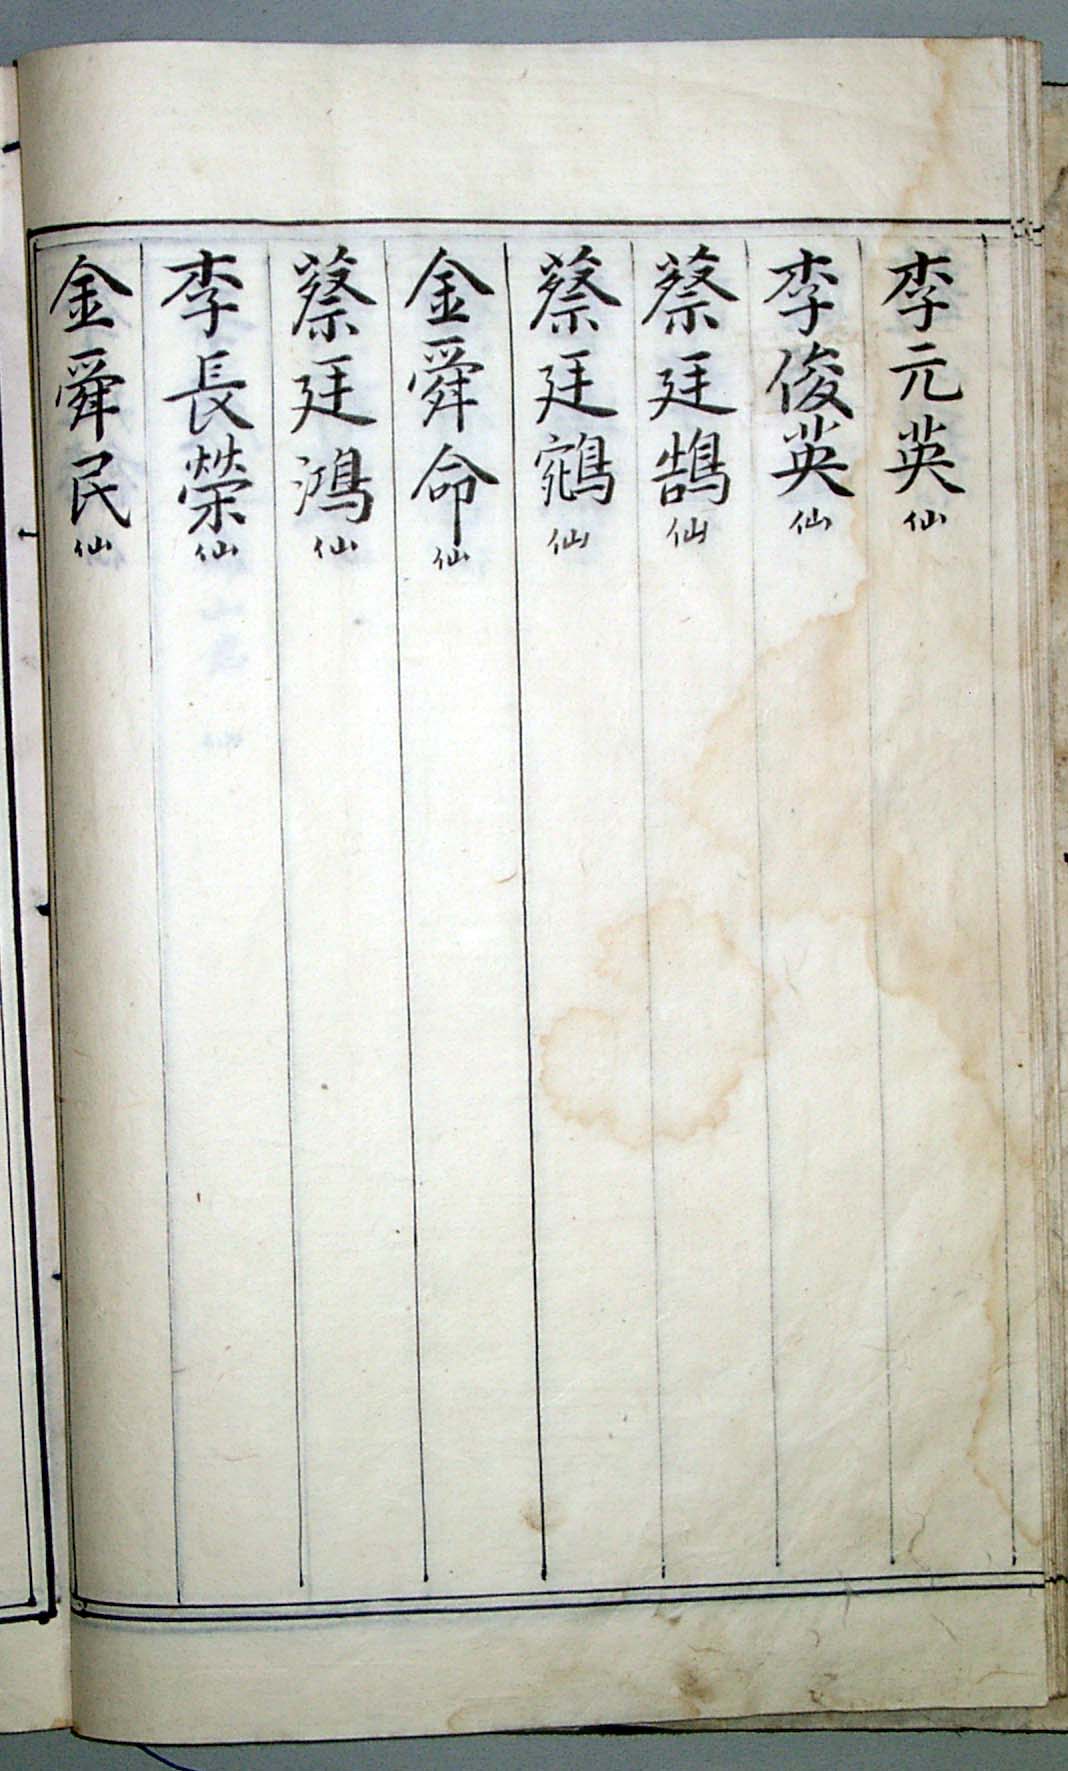 李元英仙
李俊英仙
蔡廷鵠仙
蔡廷鶴仙
金舜命仙
蔡廷鴻仙
李長榮仙
金舜民仙